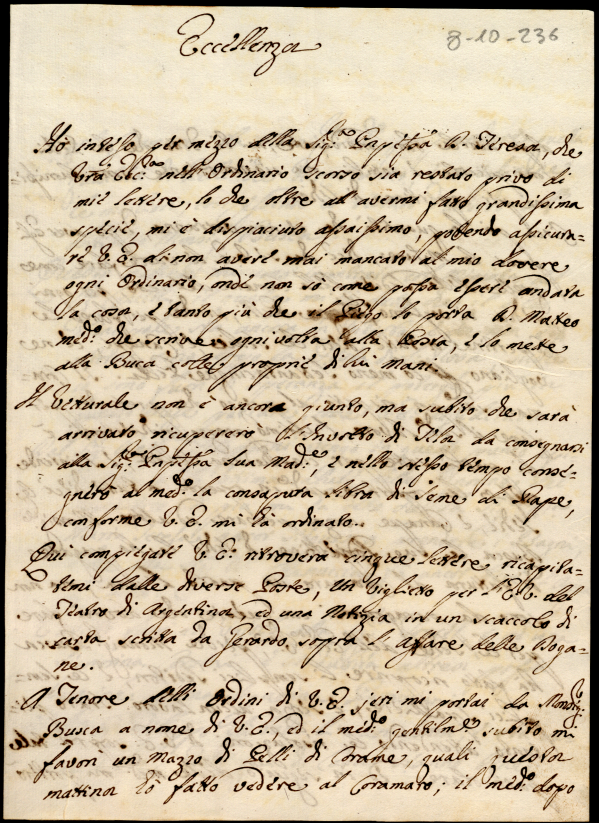 Eccellenza
8-10-236
Hò inteso per mezzo della Sig.ra Prñpessa D. Teresa, che
Vrã Ecc.za nell'Ordinario scorso sia restato privo di
mie lettere, lo che oltre all'avermi fatto grandissima
specie, mi è dispiaciuto assaissimo, potendo assicura=
re V. E. di non avere mai mancato al mio dovere
ogni Ordinario, onde non sò come possa essere andata
la cosa, e tanto più che il Piego lo porta D. Matteo
med.o che scrive ogni volta alla Posta, e lo mette
alla Buca colle proprie di lui Mani.
Il Vetturale non è ancora giunto, ma subito che sarà
arrivato, ricupererò l'Involto di Tela da consegnarsi
alla Sig.ra Prñpessa Sua Mad.e, e nello stesso tempo conse=
gnerò al med.o la consaputa libra di Seme di Rape,
conforme V. E. mi hà ordinato.
Qui compiegate V. E. ritroverà cinque lettere ricapita=
temi dalle diverse Poste, un biglietto per l'E. V. del
Teatro di Argentina, ed una Notizia in un scaccolo di
carta scritta da Gerardo sopra l'affare delle Doga=
ne.
A Tenore delli Ordini di V. E. jeri mi portai da Monsig.r
Busca a nome di V. E., ed il med.o gentilm.te subito mi
favorì un Mazzo di Pelli di Corame, quali questa
mattina hò fatto vedere al Coramaro; il med.o dopo